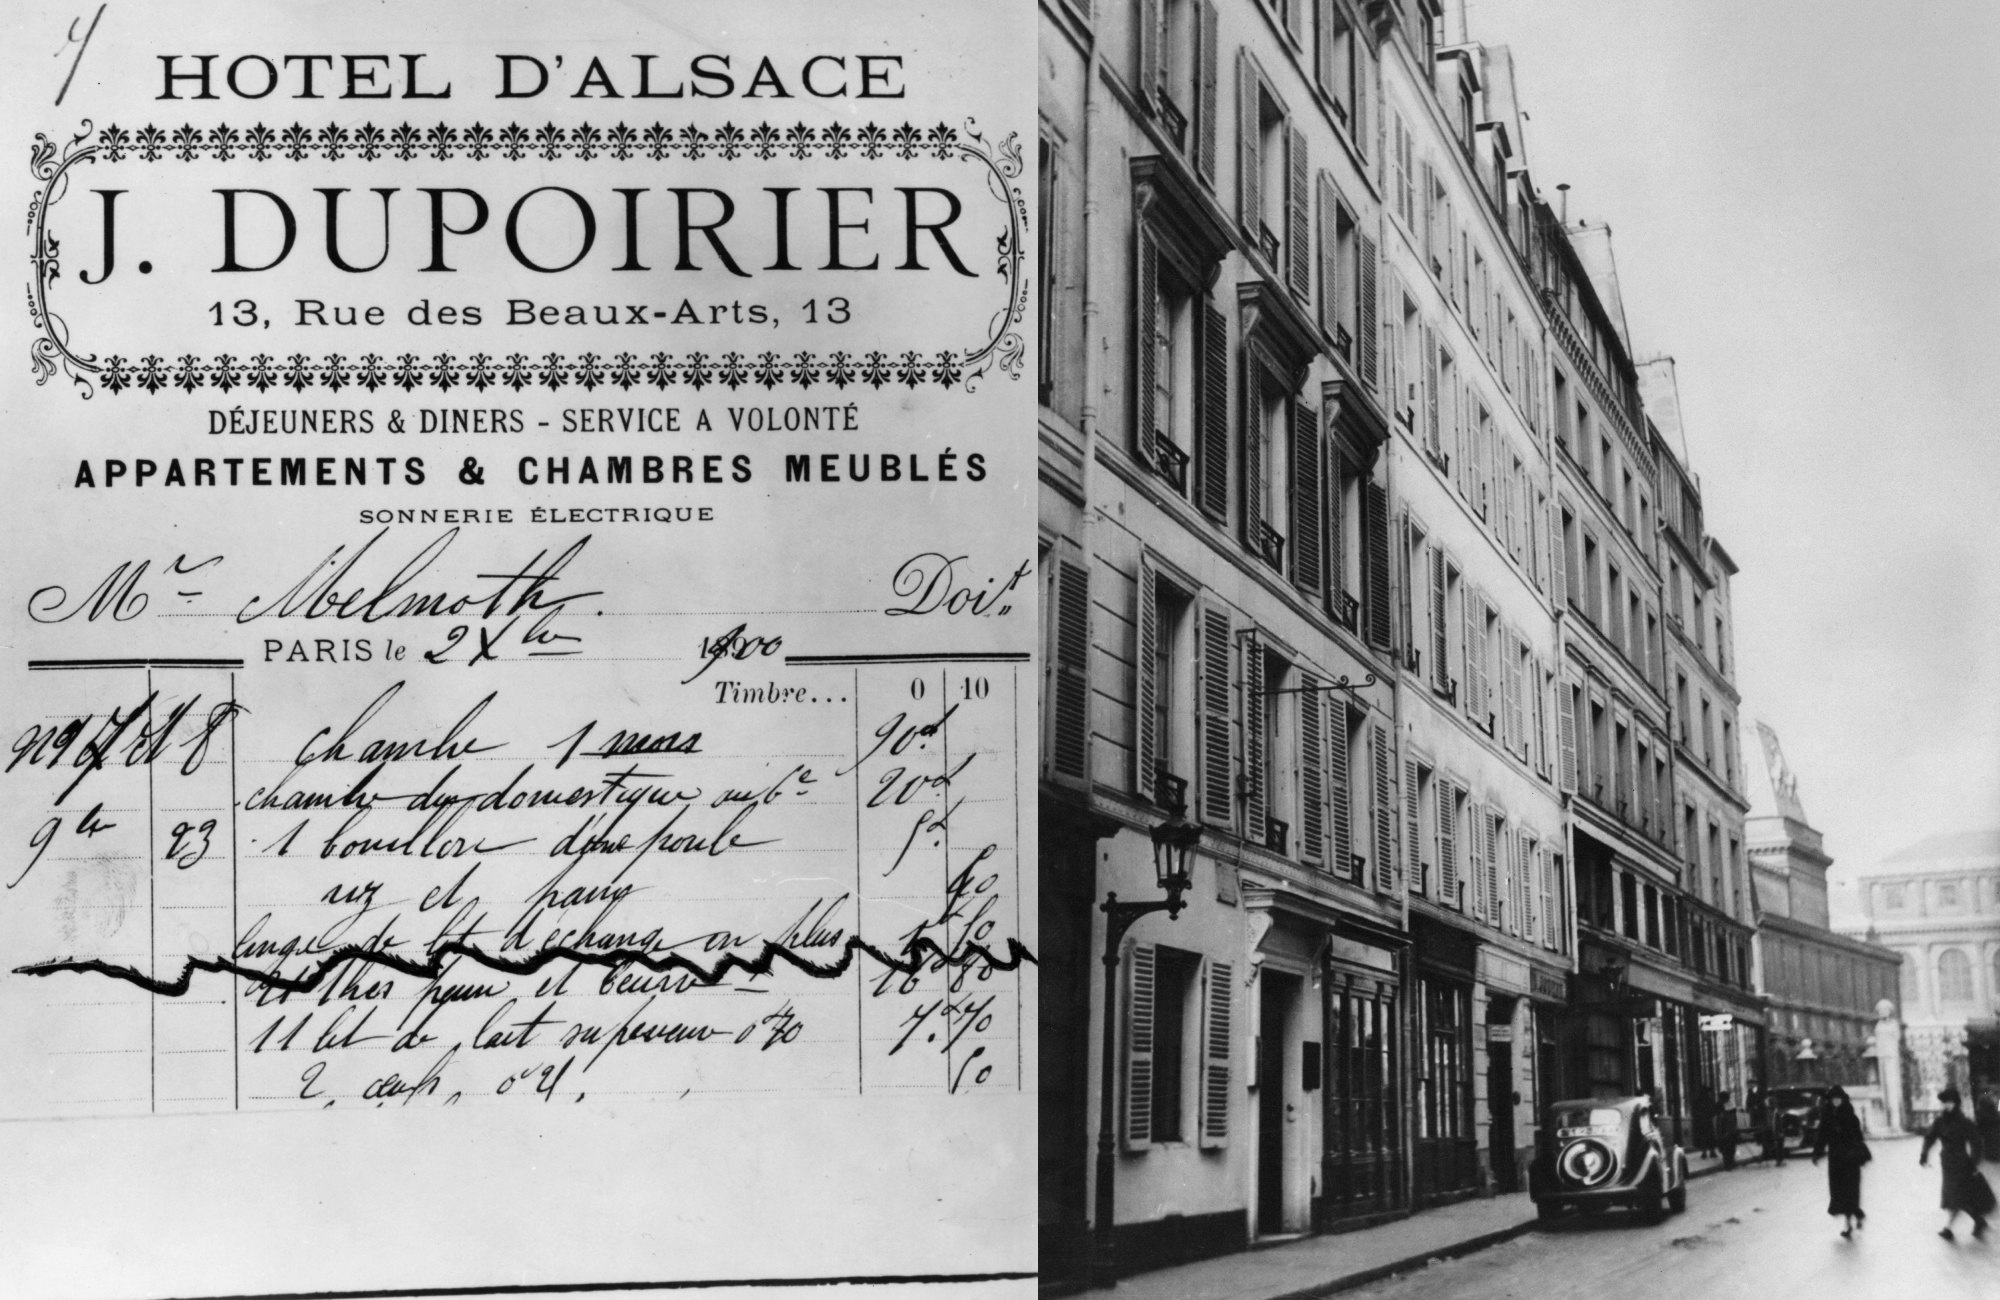 HOTEL D'ALSACE
J. DUPOIRIER
13, Rue des Beaux-Arts, 13
DÉJEUNERS & DINERS - SERVICE A VOLONTÉ
APPARTEMENTS & CHAMBRES MEUBLÉS
SONNERIE ÉLECTRIQUE
Mr Melmoth. Doit
PARIS le 2 Xbre 1900
Timbre... 0 10
chambre 1 mois 90f
chambre du domestique au 6e 20f
9bre 23 1 bouillon d'une poule 5f
riz et pain 40
linge de lit d'échange en plus
thés pain et beurre
11 lit de lait supérieur 0f70 7.f70
2 œufs,